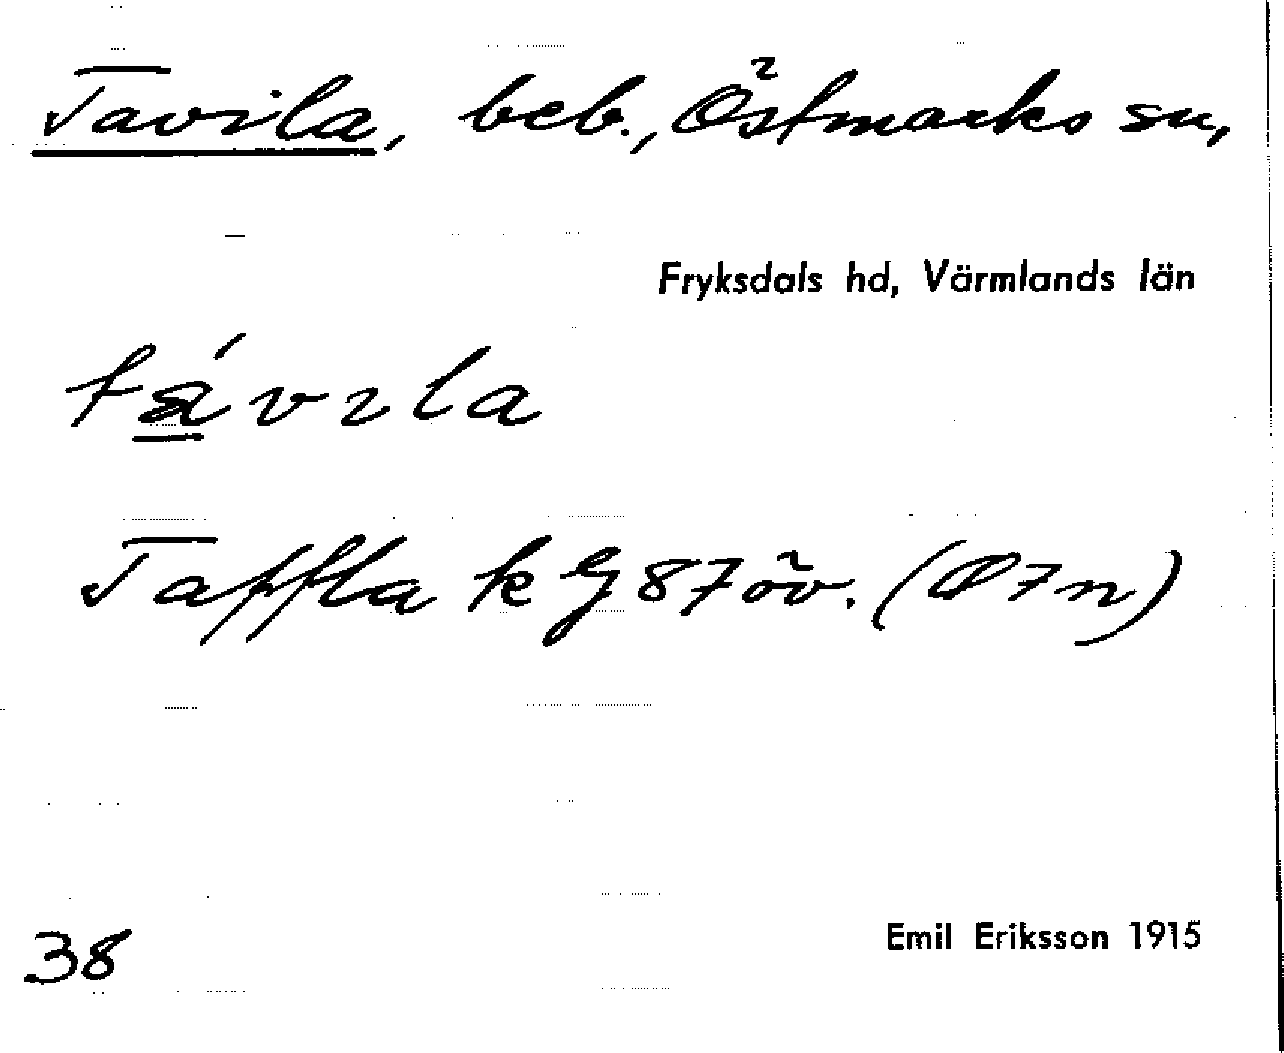 Tavila, beb., Östmarks sn,
Fryksdals hd, Värmlands län
távıla
Taffla k G 87 öv. (Ø 7 n)
38
Emil Eriksson 1915